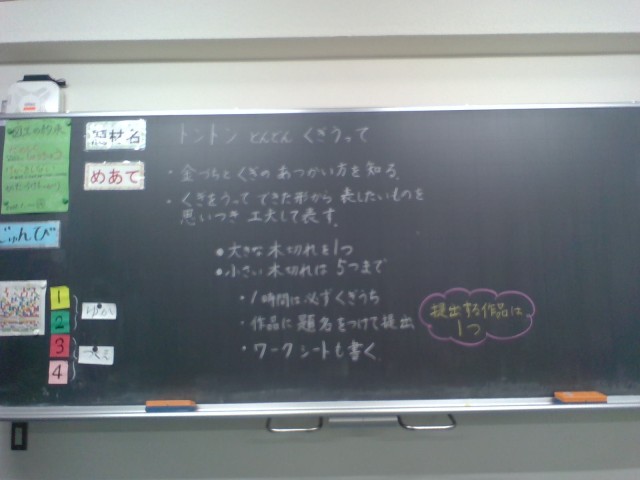 題材名
トントン どんどん くぎうって
めあて
・金づちとくぎの あつかい方を知る。
・くぎをうって できた形から 表したいものを
思いつき 工夫して表す。
じゅんび
●大きな木切れを1つ
●小さい木切れは 5つまで
・1時間は必ずくぎうち
・作品に 題名をつけて提出
・ワークシートも書く
提出する作品は
1つ
1
2
3
4